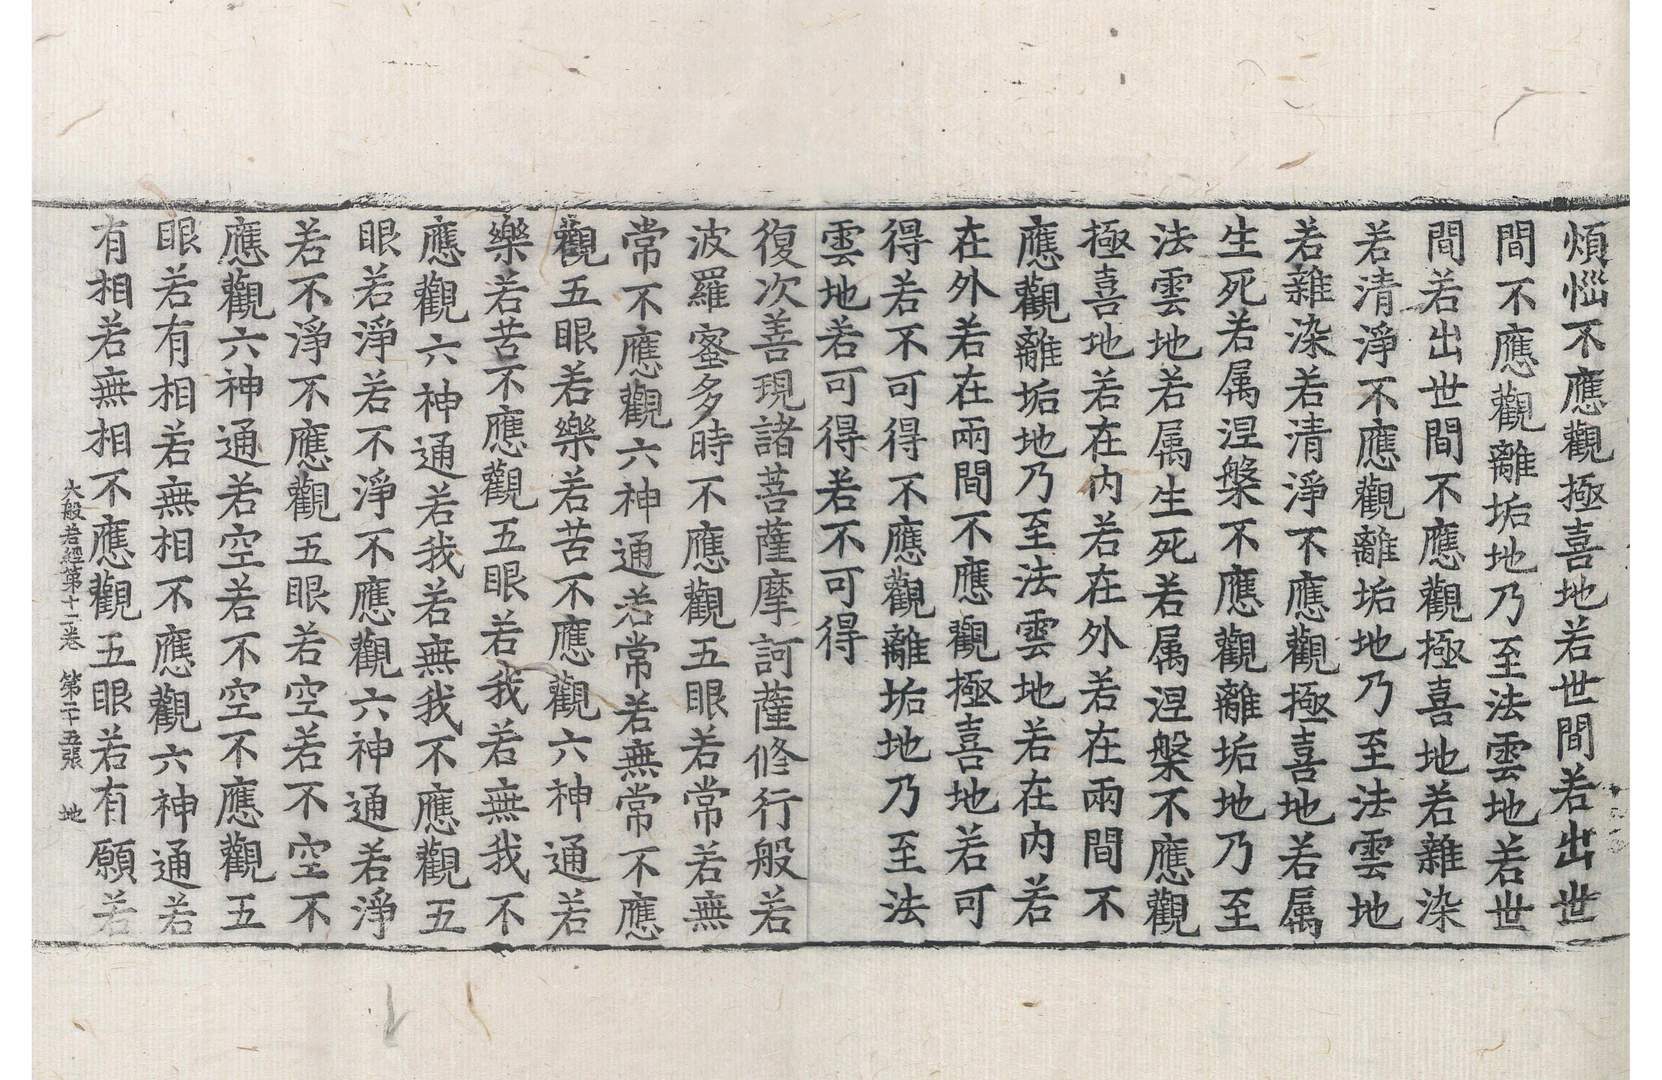 煩惱不應觀極喜地若世間若出世
間不應觀離垢地乃至法雲地若世
間若出世間不應觀極喜地若雜染
若清淨不應觀離垢地乃至法雲地
若雜染若清淨不應觀極喜地若属
生死若属涅槃不應觀離垢地乃至
法雲地若属生死若属涅槃不應觀
極喜地若在內若在外若在兩間不
應觀離垢地乃至法雲地若在內若
在外若在兩間不應觀極喜地若可
得若不可得不應觀離垢地乃至法
雲地若可得若不可得
復次善現諸菩薩摩訶薩修行般若
波羅蜜多時不應觀五眼若常若無
常不應觀六神通若常若無常不應
觀五眼若樂若苦不應觀六神通若
樂若苦不應觀五眼若我若無我不
應觀六神通若我若無我不應觀五
眼若淨若不淨不應觀六神通若淨
若不淨不應觀五眼若空若不空不
應觀六神通若空若不空不應觀五
眼若有相若無相不應觀六神通若
有相若無相不應觀五眼若有願若
大般若經第十二卷 第二十五張 地